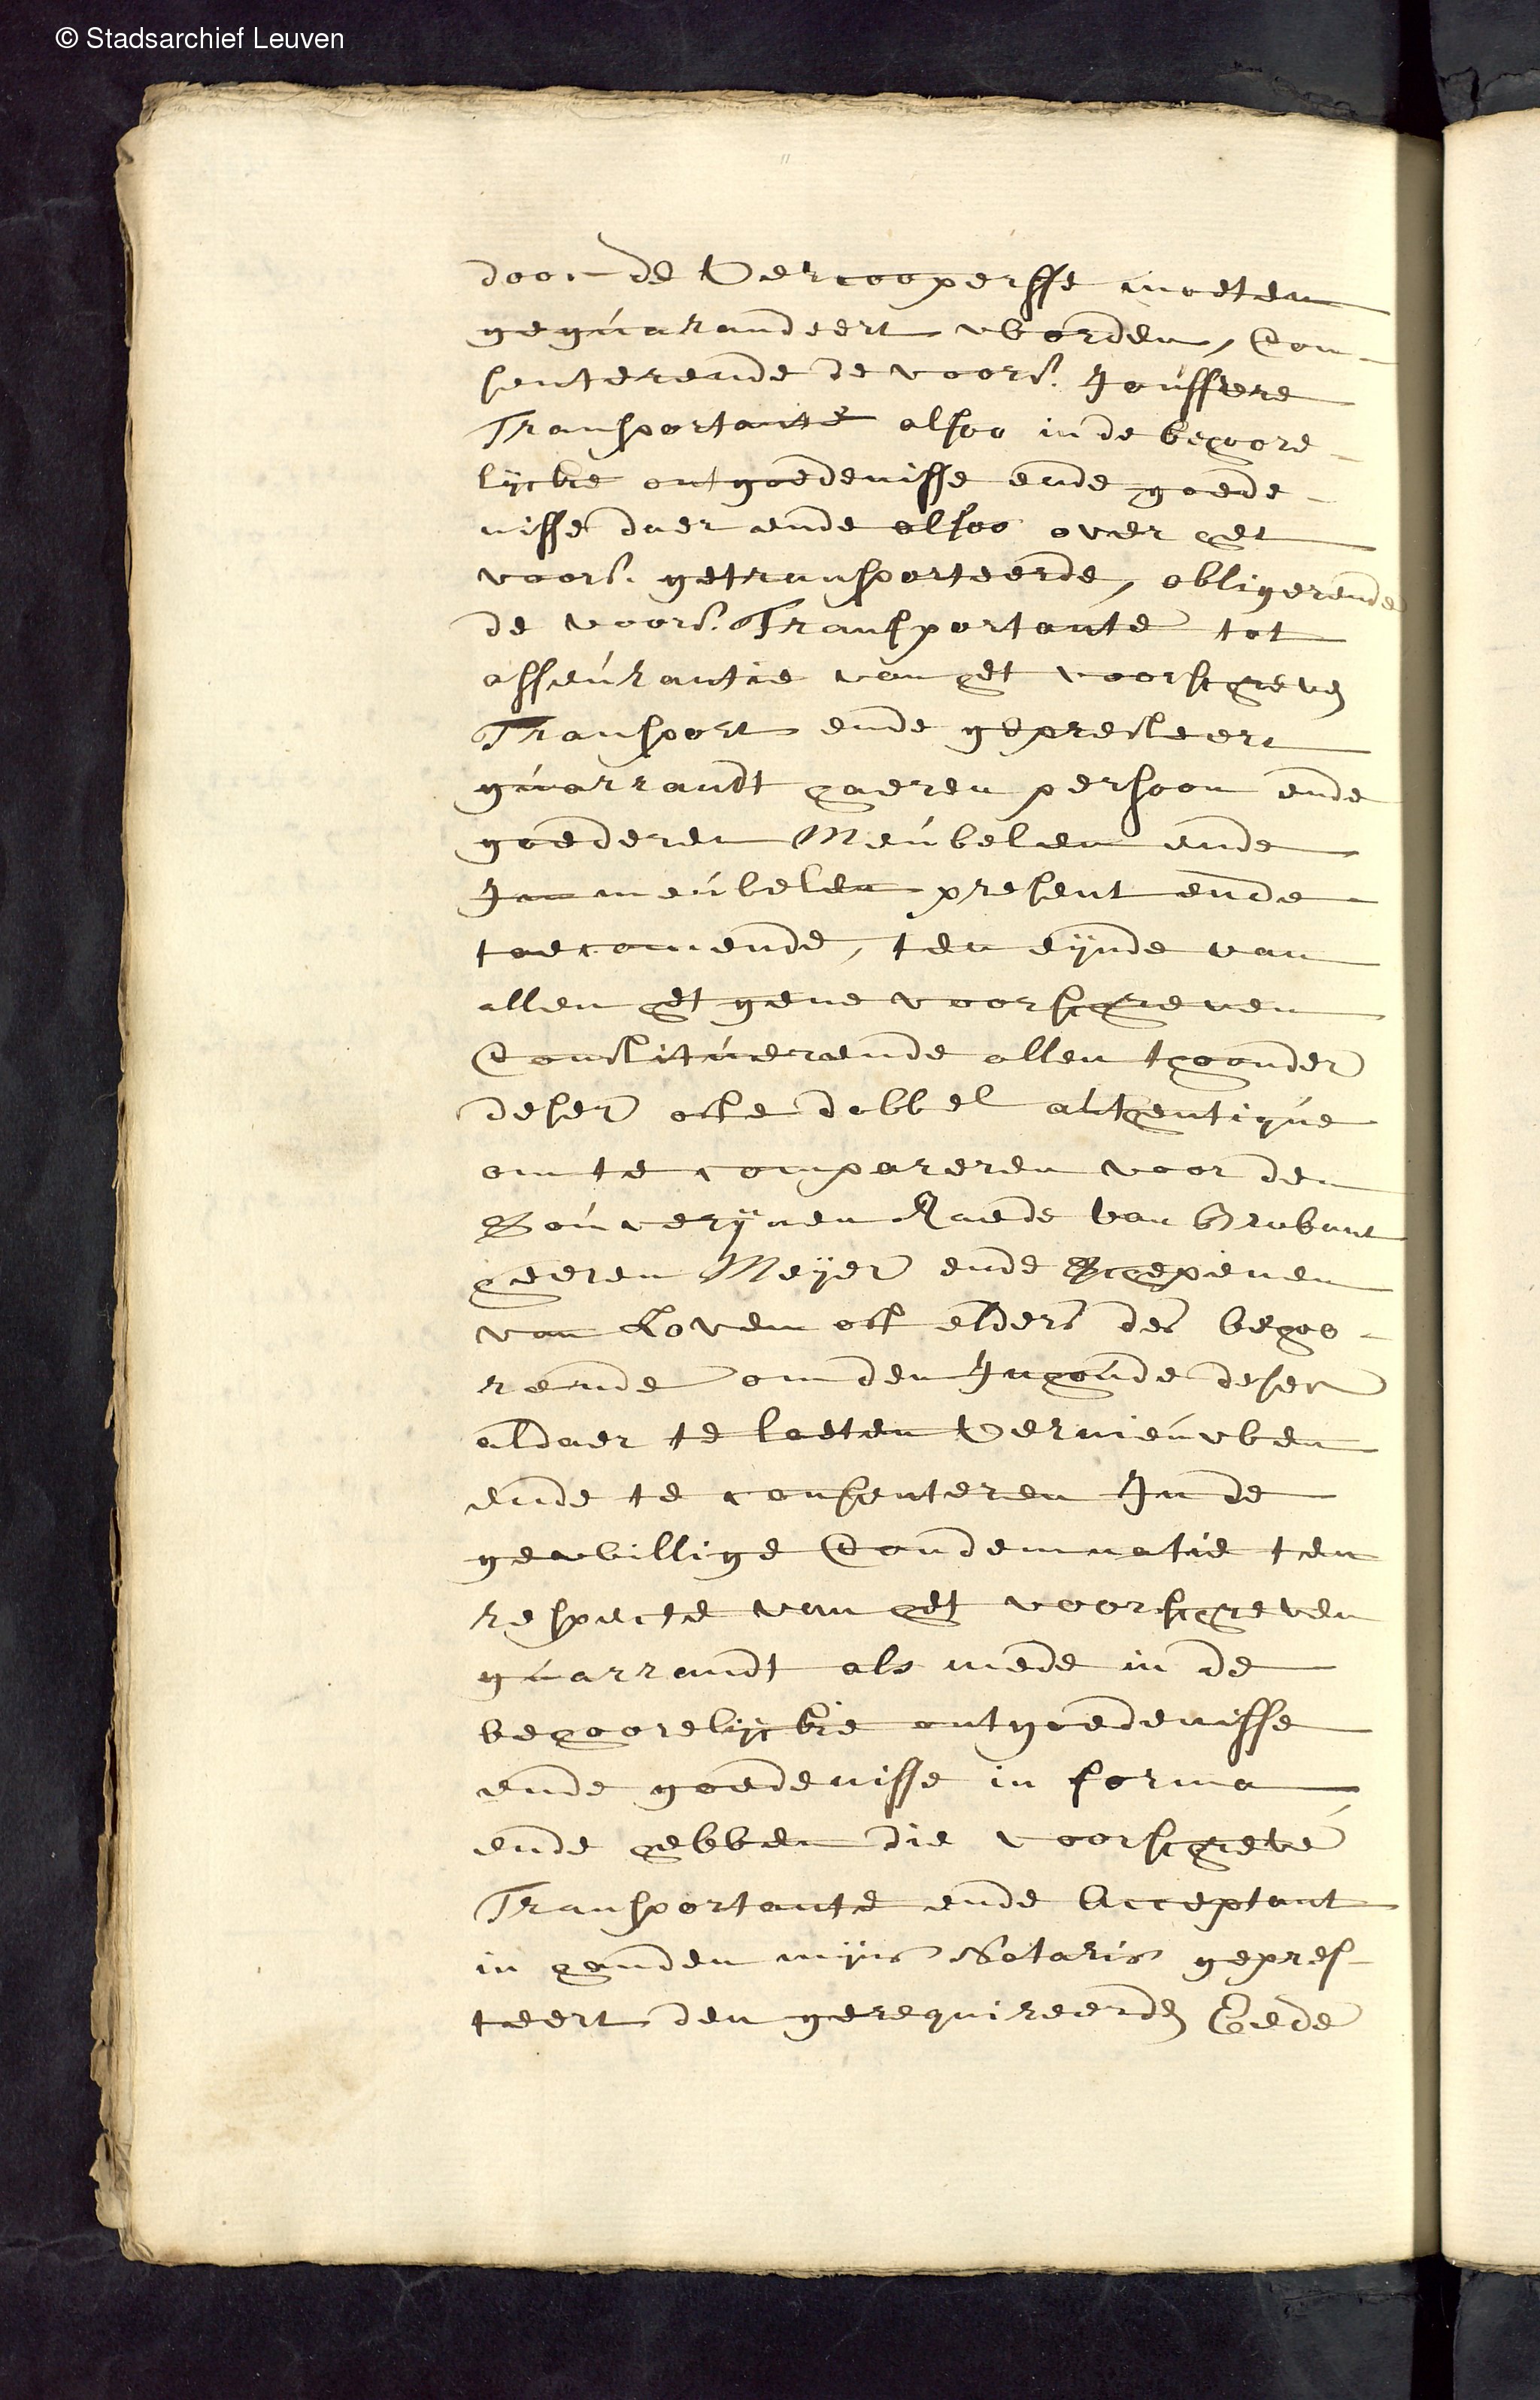 © Stadsarchief Leuven
door de Vercoopersse moeten
geguarandeert worden, Con-
senterende de voors. Jouffere
Transportante alsoo in de behoore-
lijcke ontgoedenisse ende goede-
nisse daer ende alsoo over het
voors. getransporteerde, obligerende
de voors. Transportante tot
asseurantie van het voorschreven
Transport ende gepresteert
guarrandt haeren persoon ende
goederen Meubelen ende
Immeubelen present ende
toecomende, ten eijnde van
allen het gene voorschreven
Constituerende allen thoonder
deser ofte dobbel authentique
om te compareren voor den
Souverijnen Raede van Brabant
heeren Meijer ende Schepenen
van Loven oft elders des behoo-
rende om den Inhoude deser
aldaer te laeten Vernieuwen
ende te consenteren In de
gewillige Condemnatie ten
respecte van het voorschreven
guarrandt als mede in de
behoorelijcke ontgoedenisse
ende goedenisse in forma
ende hebben die voorschreve
Transportante ende Acceptant
in handen mijns Notaris gepres-
teert den gerequireerden Eede